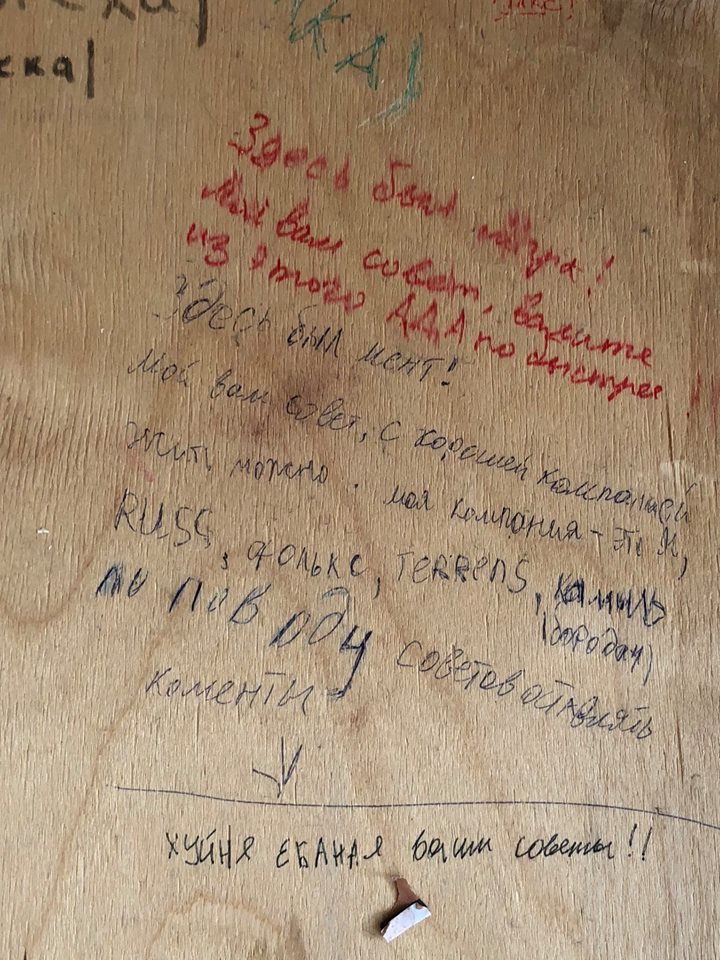 ска)
КА)
Здесь был
Мой вам совет, валите
из этого АДА по быстрее!
Здесь был мент!
Мой вам совет, с хорошей компанией
жить можно. моя компания - это я,
RUSS, фолькс, TERRENS, камиль
(бородач)
по поводу советов оставлять
коменты
ХУЙНЯ ЕБАНАЯ ваши советы!!